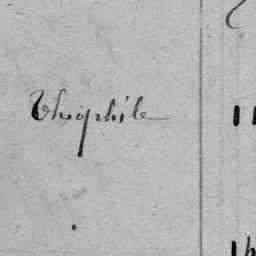 Théophile
11